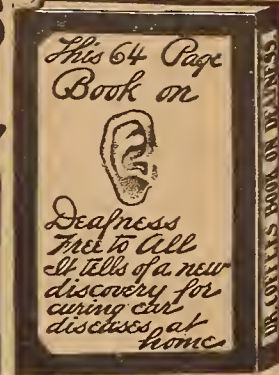 This 64 Page
Book on
Deafness
Free to All
It tells of a new
discovery for
curing ear
diseases at
home
BOOK ON DEAFNESS